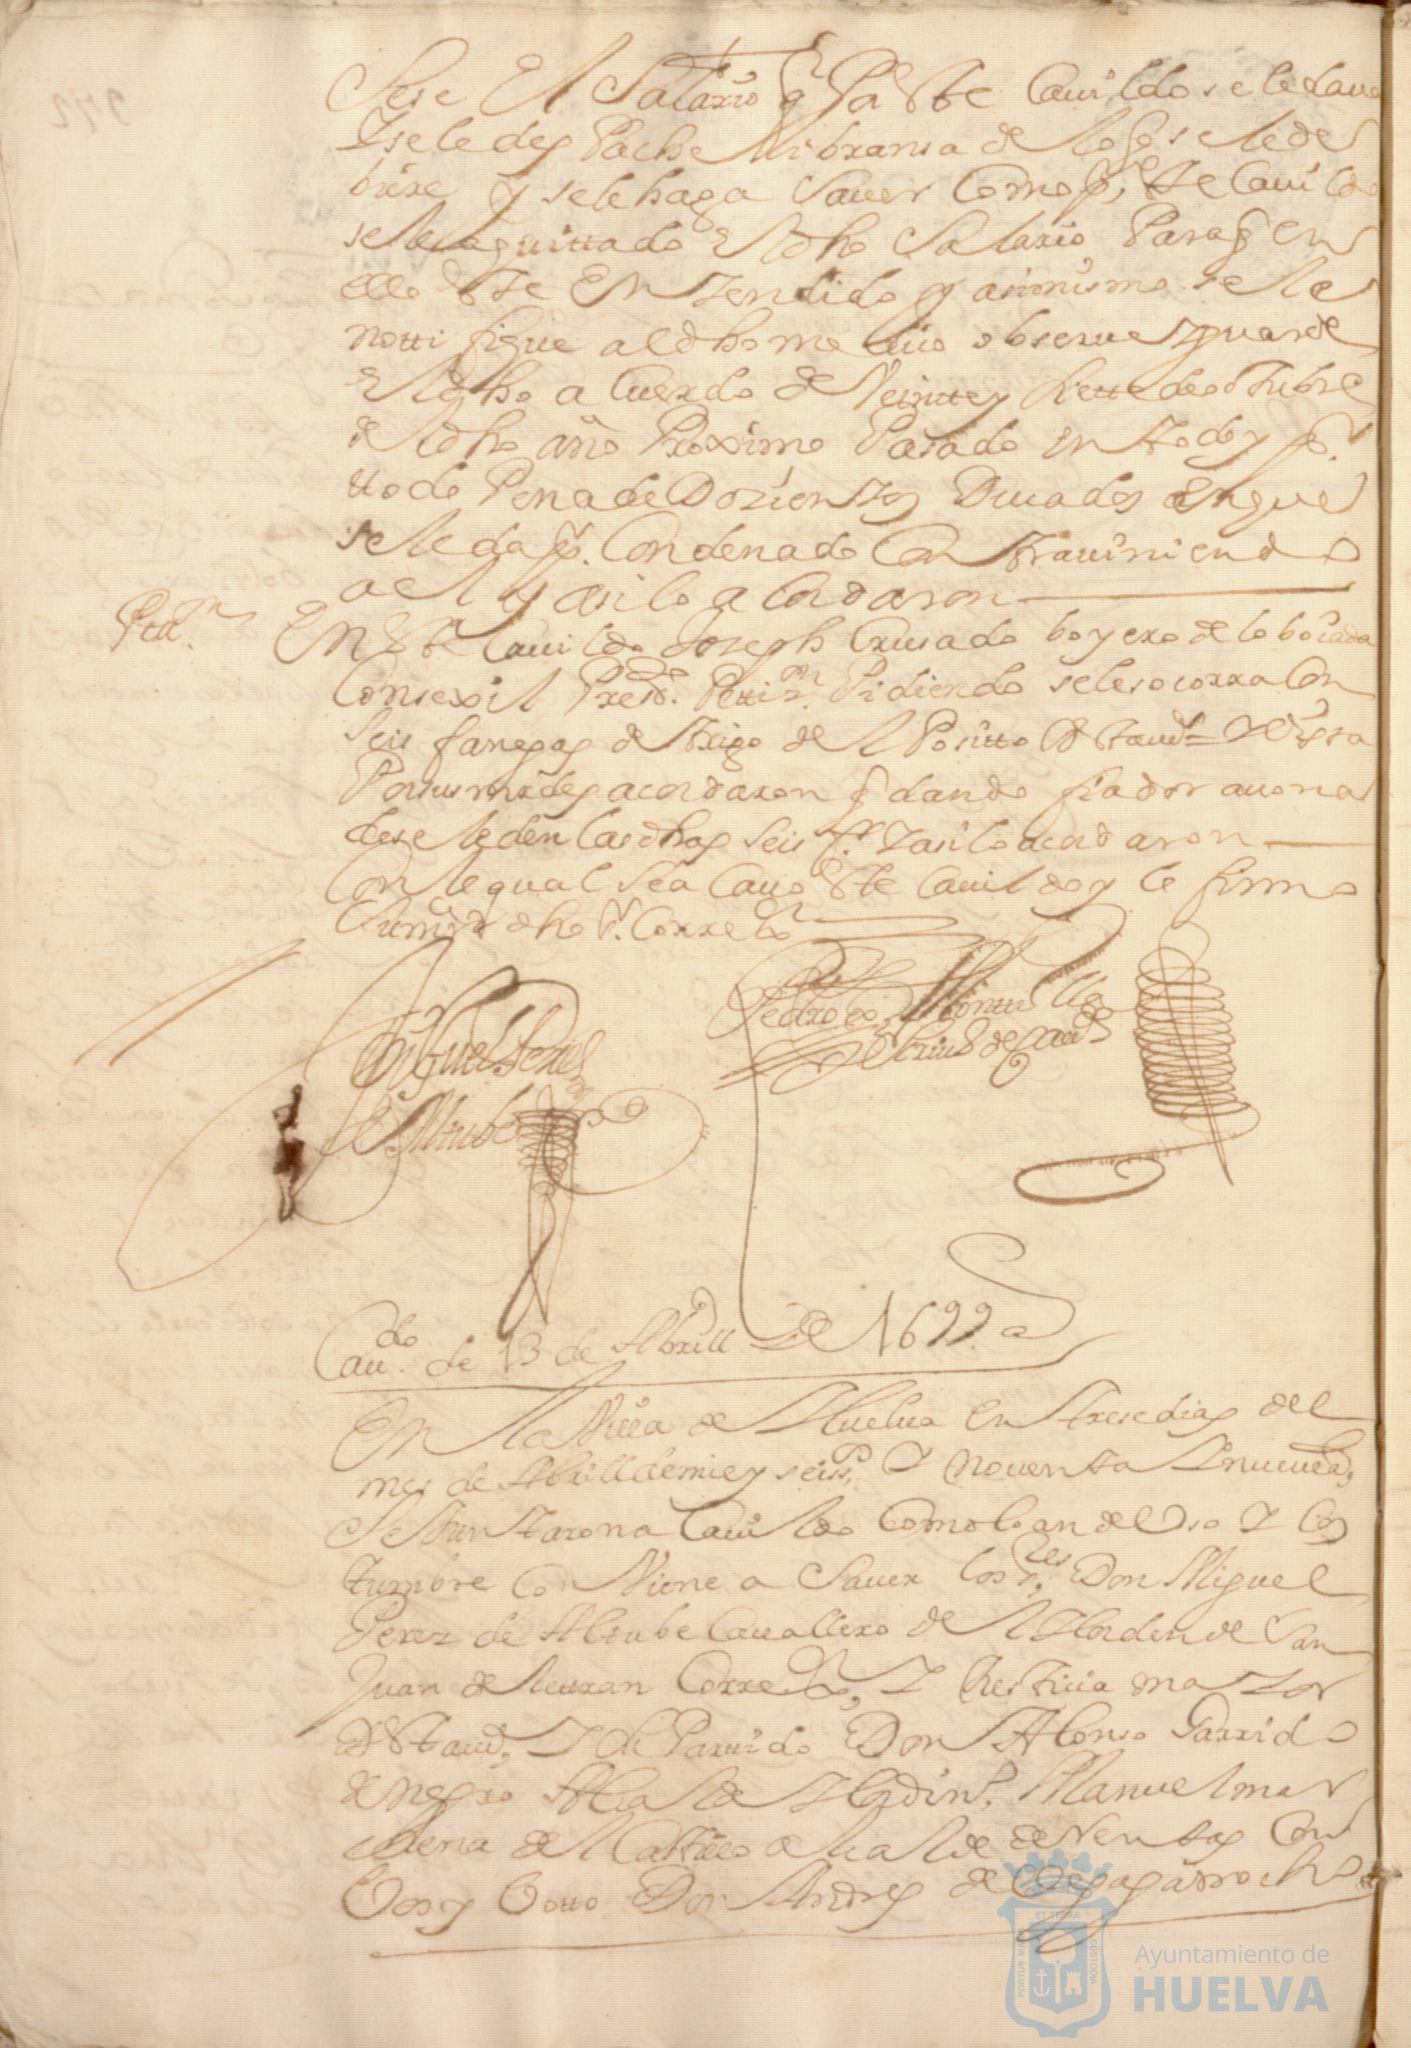 sese El Salario q Pr Este Cauildo se le daua
Y se le despache libransa de lo q se le de
biere y se le haga sauer como pr Este Cauildo
se le a quittado El dho Salario Para q en
ello Este Entendido y asimismo se le
nottifique al dho medico obserue y guarde
El dho acuerdo de Veintte y siette de otubre
del dho año Proximo Pasado en todo y pr
ttodo Pena de Dozientos Ducados en que
se le da pr Condenado Contrauiniendo
a el y asi lo acordaron
Petn
En Este Cauildo Joseph Crusado boyero de la boiada
Consexil Presdo Pettizn Pidiendo se le socorra con
seis fanegas de trigo del Positto de Esta uia = Y Vista
Por sus mrdes acordaron q dando fiador auona
do se le den las dhas seis fs Y asi lo acordaron
Con lo qual se acauo Este Cauildo y lo firmo
Su mrd dho Sr Corregor
Miguel Perez
de Altube
Pedro de Montilla
Scriuo de Cauo
Cauo de 13 de Abrill de 1699 as
En la Villa de Huelua en trese dias del
mes de Abrill de mil y seiss Y nouenta Y nueue as
Se Juntaron a Cauildo como lo an de Uso Y Cos
tumbre conViene a Sauer los sres Don Miguel
Perez de Altube Cauallero del Horden de San
Juan de lettran Corregor Y Justicia maior
de Esta ua Y su Parttido Don Alonso Garrido
de negro Alcalde Hordino Manuel mar
chena del Castillo alcalde de Ventas con
Vos y Votto Don Andres de Vegas garrocho
Ayuntamiento de
HUELVA
PORTUS MARIS
ET TERRÆ
CUSTODIA